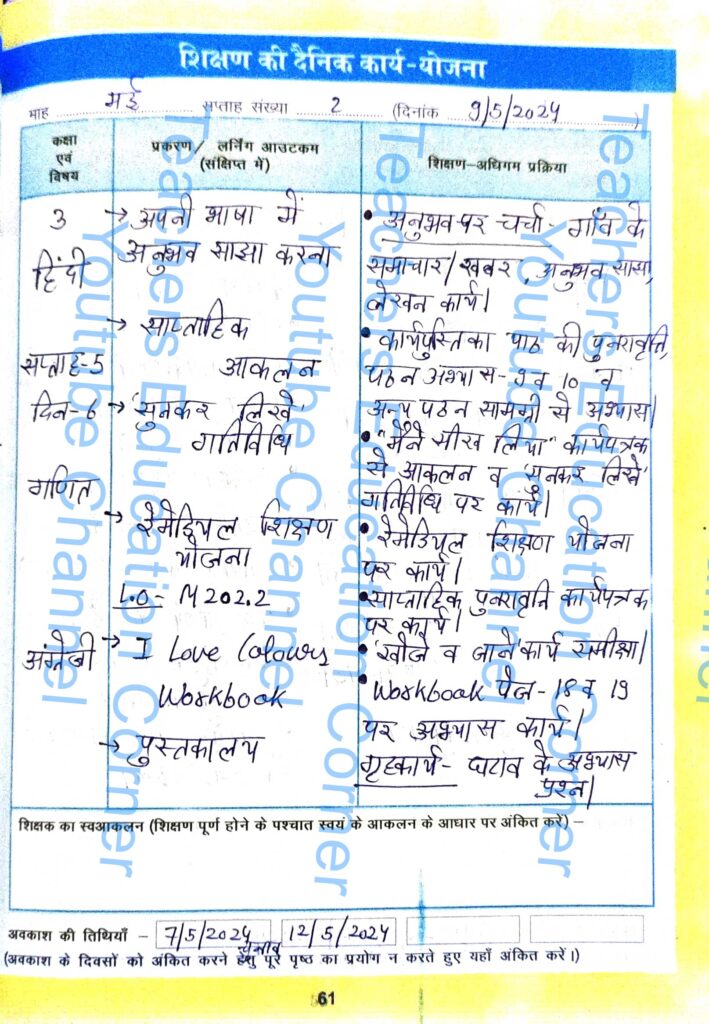 शिक्षण की दैनिक कार्य-योजना
माह मई सप्ताह संख्या 2 (दिनांक 9/5/2024)
कक्षा एवं विषय
प्रकरण/ लर्निंग आउटकम (संक्षिप्त में)
शिक्षण-अधिगम प्रक्रिया
3
हिंदी
सप्ताह-5
दिन-6
गणित
अंग्रेजी
→ अपनी भाषा में
अनुभव साझा करना
→ साप्ताहिक
आकलन
→ 'सुनकर लिखें'
गतिविधि
→ रेमेडियल शिक्षण
योजना
L.O- M202.2
→ I Love Colours
Workbook
→ पुस्तकालय
• अनुभव पर चर्चा - गाँव के
समाचार/खबर, अनुभव साझा,
लेखन कार्य।
• कार्यपुस्तिका पाठ की पुनरावृत्ति,
पठन अभ्यास - 9 व 10 व
अन्य पठन सामग्री से अभ्यास।
• "मैंने सीख लिया" कार्यपत्रक
से आकलन व 'सुनकर लिखें'
गतिविधि पर कार्य।
• रेमेडियल शिक्षण योजना
पर कार्य।
• साप्ताहिक पुनरावृत्ति कार्यपत्रक
पर कार्य।
• 'खोजें व जानें' कार्य समीक्षा।
• Workbook पेज - 18 व 19
पर अभ्यास कार्य।
गृहकार्य - घटाव के अभ्यास
प्रश्न।
शिक्षक का स्वआकलन (शिक्षण पूर्ण होने के पश्चात स्वयं के आकलन के आधार पर अंकित करें) –
अवकाश की तिथियाँ – 7/5/2024 12/5/2024
चुनाव
(अवकाश के दिवसों को अंकित करने हेतु पूरे पृष्ठ का प्रयोग न करते हुए यहाँ अंकित करें।)
61
Teachers Education Corner
Youtube Channel
Teachers Education Corner
Youtube Channel
Teachers Education Corner
Youtube Channel